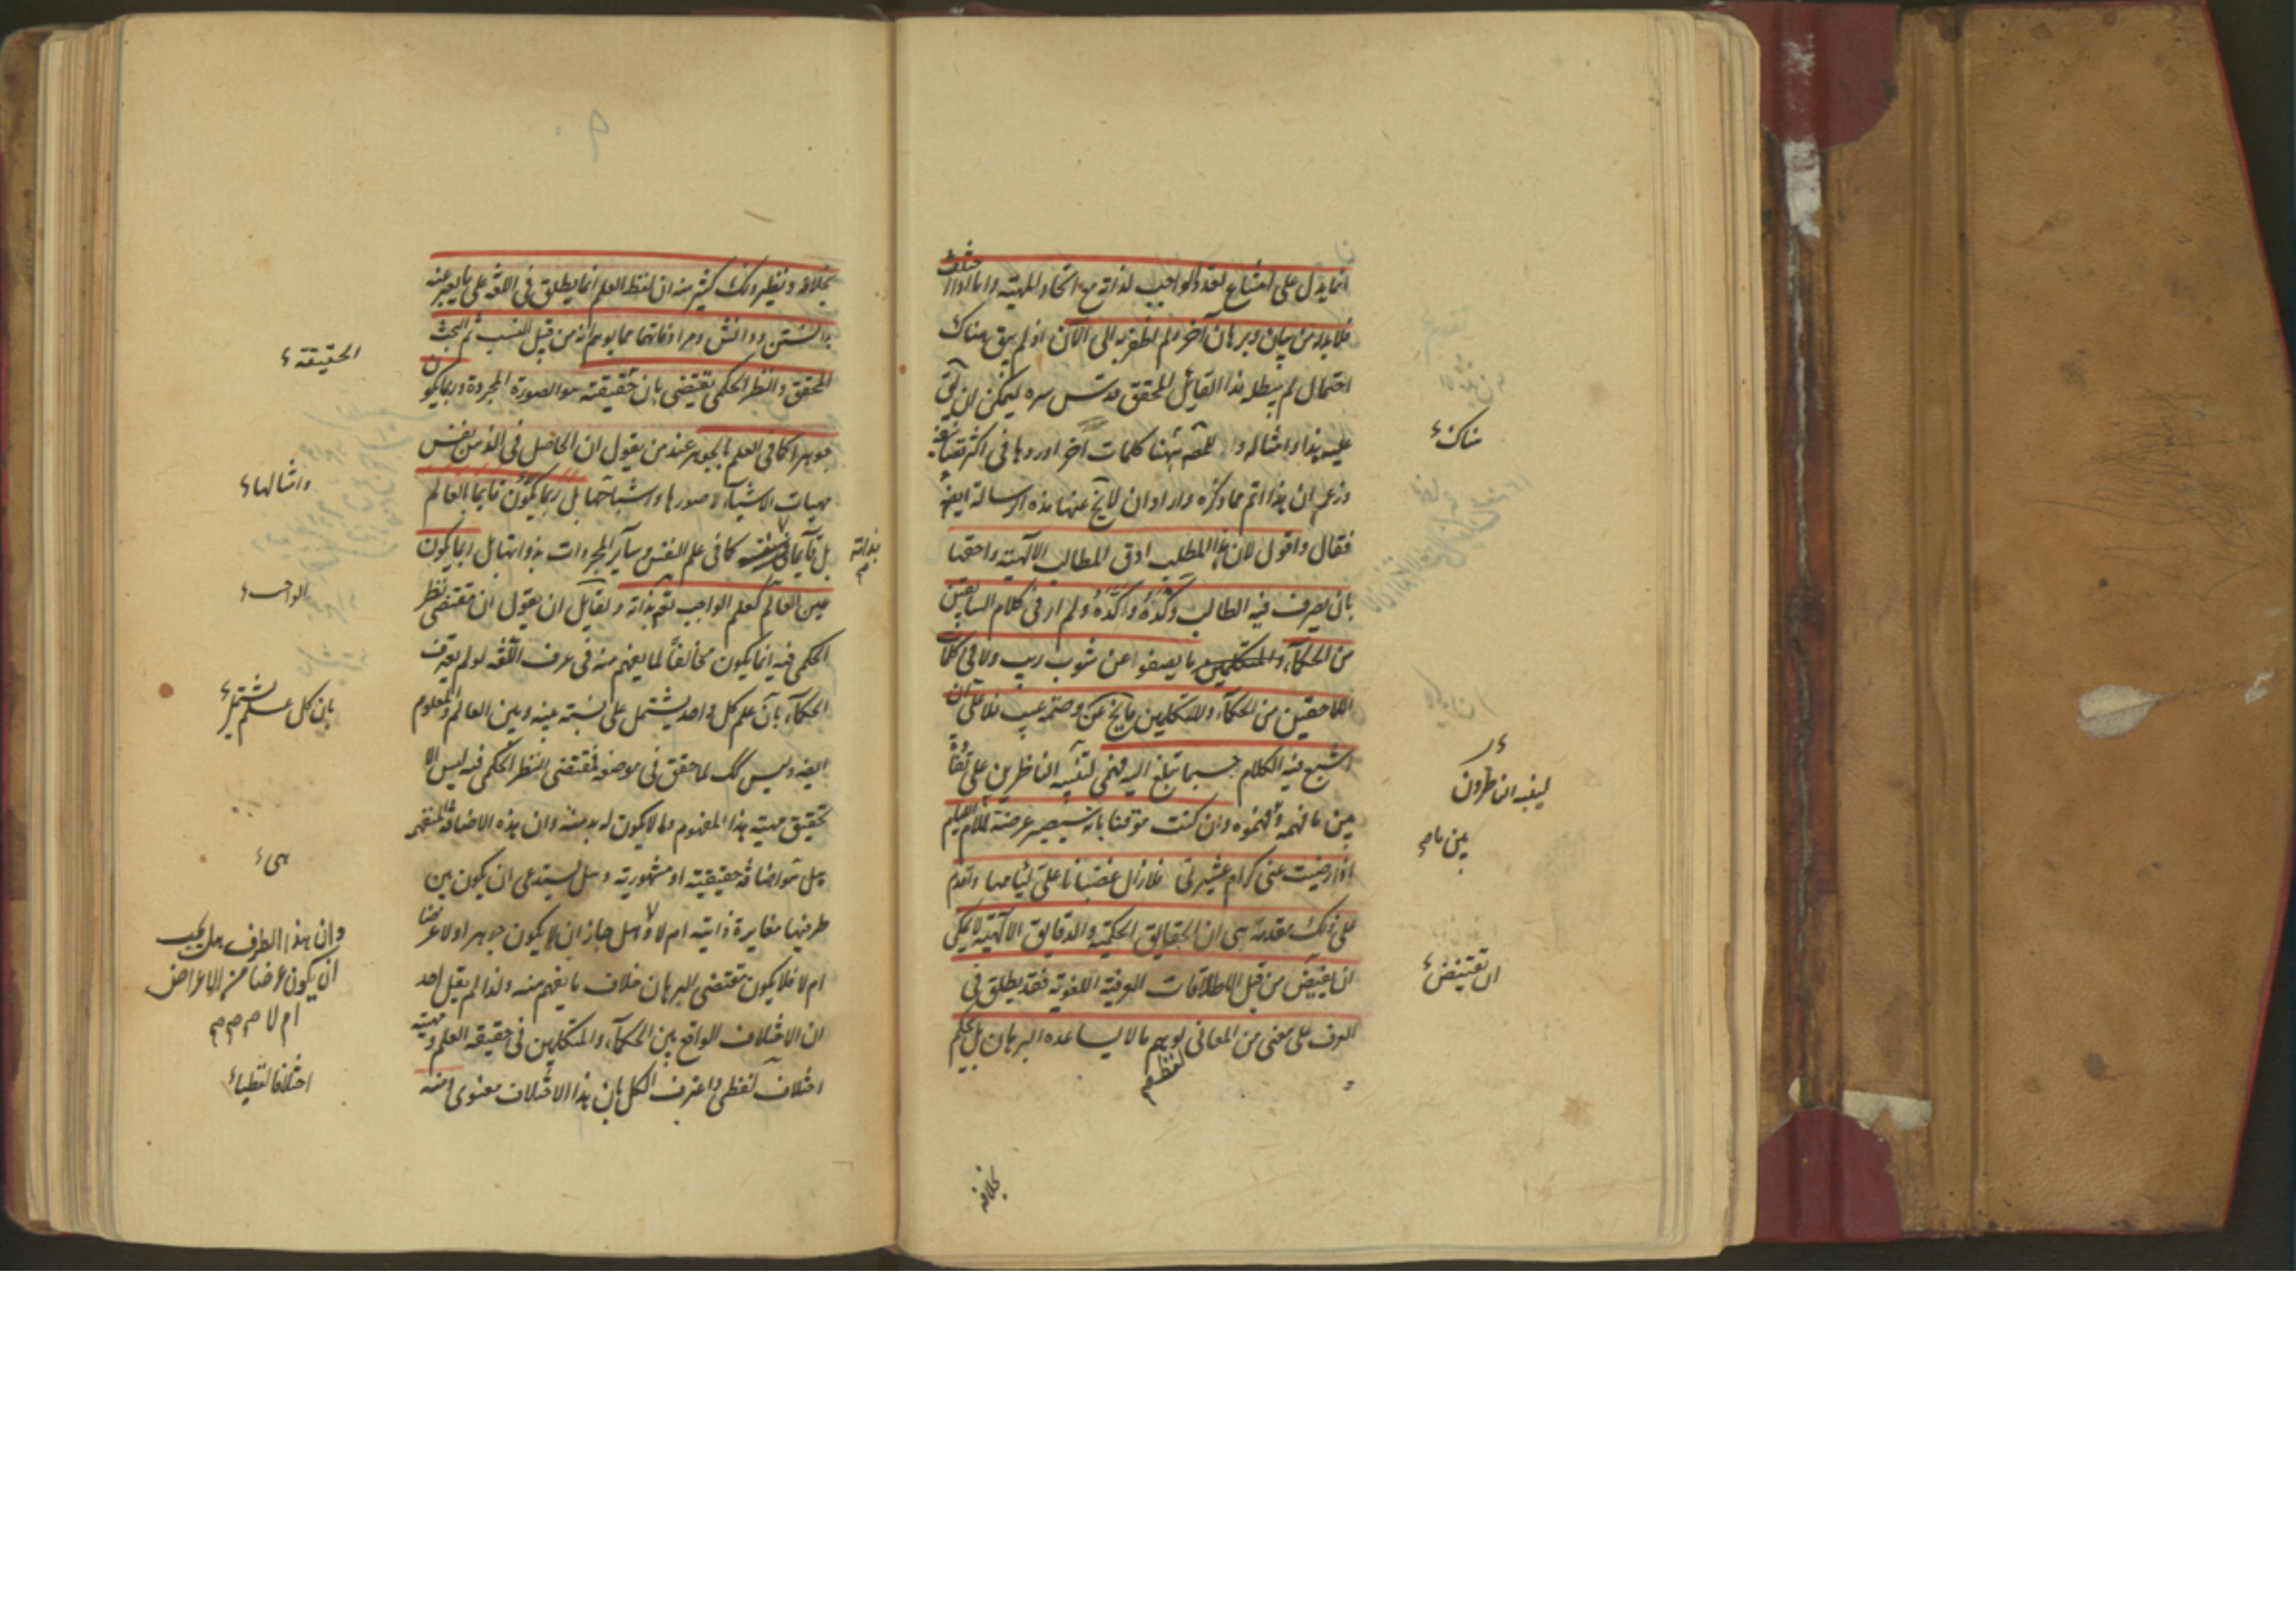 انما يدل على امتناع تعدد الواجب لذاته مع اتحاد المهية واما اذا اختلف
فلا بد من بيان وبرهان آخر ولم اظفر به الى الآن اذ لم يبق هناك
احتمال لم يبطله هذا القايل المحقق قدس سره ليمكن ان
عليه هذا وامثاله وللمصه ههنا كلمات آخر اوردها فى اكثر تصانيفه
وزعم ان هذا اتم مما ذكره واراد ان لا يخ عنها هذه الرسالة ايضه
فقال واقول لان هذا المطلب ادق المطالب الالهية واحقها
بان يصرف فيه الطالب وكده وكده ولم ار فى كلام السابقين
من الحكمآء والمتكلمين ما يصفو عن شوب ريب ولا فى كلمات
اللاحقين من الحكمآء والمتكلمين ما يخ عن وصمة عيب فلا على ان
اشبع فيه الكلام حسبما تبلغ اليه فهمى لتنبيه الناظرين على تفاوت
بين ما فهمه وفهموه وان كنت موقنا بانه سيصير عرضة للملام اللئام
اذا رضيت عنى كرام عشيرتى فلا زال غضبانا على لئامها واقدم
على ذلك مقدمة هى ان الحقايق الحكمية والدقايق الالهية لا يمكن
ان يقتنص من قبل الاطلاقات العرفية اللغوية فقد يطلق فى
العرف على معنى من المعانى لفظ يوهم ما لا يساعده البرهان بل يحكم
بخلافه
هناك
لينبه الناظرون
بين ما
ان تقتنص
بخلافه ونظير ذلك كثير منه ان لفظ العلم انما يطلق فى اللغة على ما يعبر عنه
بدانستن ودانش ومرادفاتهما مما يوهم انه من قبيل النسب ثم البحث
المحقق والنظر الحكمى تقتضى بان حقيقته هو الصورة المجردة وربما يكون
جوهرا كما فى العلم بالجوهر عند من يقول ان الحاصل فى الذهن نفس
مهيات الاشيآء لا صورها واشباحها بل ربما يكون قايما بالعالم
بل قآيما بنفسه كما فى علم النفس وسآير المجردات بذواتها بل ربما يكون
عين العالم كعلم الواجب تعه بذاته ولقآيل ان يقول ان مقتضى نظر
الحكمى فيه انما يكون مخالفا لما يفهم منه فى عرف اللغه لو لم يعترف
الحكمآء بان علم كل واحد يشتمل على نسبة بينه وبين العالم والمعلوم
ايضه وليس كك لما حقق فى موضعه فمقتضى النظر الحكمى فيه ليس الا
تحقيق مهية هذا المفهوم وما لا يكون له بد منه وان هذه الاضافة المفهمه
هل هو اضافة حقيقية او مشهورية وهل يستدعى ان يكون بين
طرفيها مغايرة ذاتيه ام لا وهل جاز ان لا يكون جوهرا ولا عرضا
ام لا فلا يكون مقتضى البرهان خلاف ما يفهم منه ولذا لم يقل احد
ان الاختلاف الواقع بين الحكمآء والمتكلمين فى حقيقة العلم ومهيته
اختلاف لفظى واعترف الكل بان هذا الاختلاف معنوى ومنه
بذاته
الحقيقة
وامثالها
الواجب
بان كل علم يشتمل
هى
وان هذا الطرف هل يجب
ان يكون عرضا من الاعراض
ام لا
اختلافا لفظيا